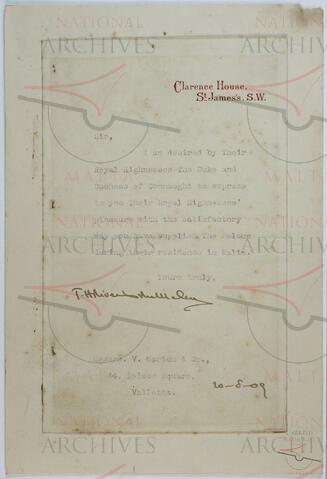 NATIONAL
ARCHIVES
Clarence House,
St James's, S.W.
Sir,
I am desired by Their
Royal Highnesses The Duke and
Duchess of Connaught to express
to you Their Royal Highnesses'
pleasure with the satisfactory
way you have supplied The Palace
during their residence in Malta.
Yours truly,
Messrs. V. & Co.,
Square,
Valletta.
20-8-09